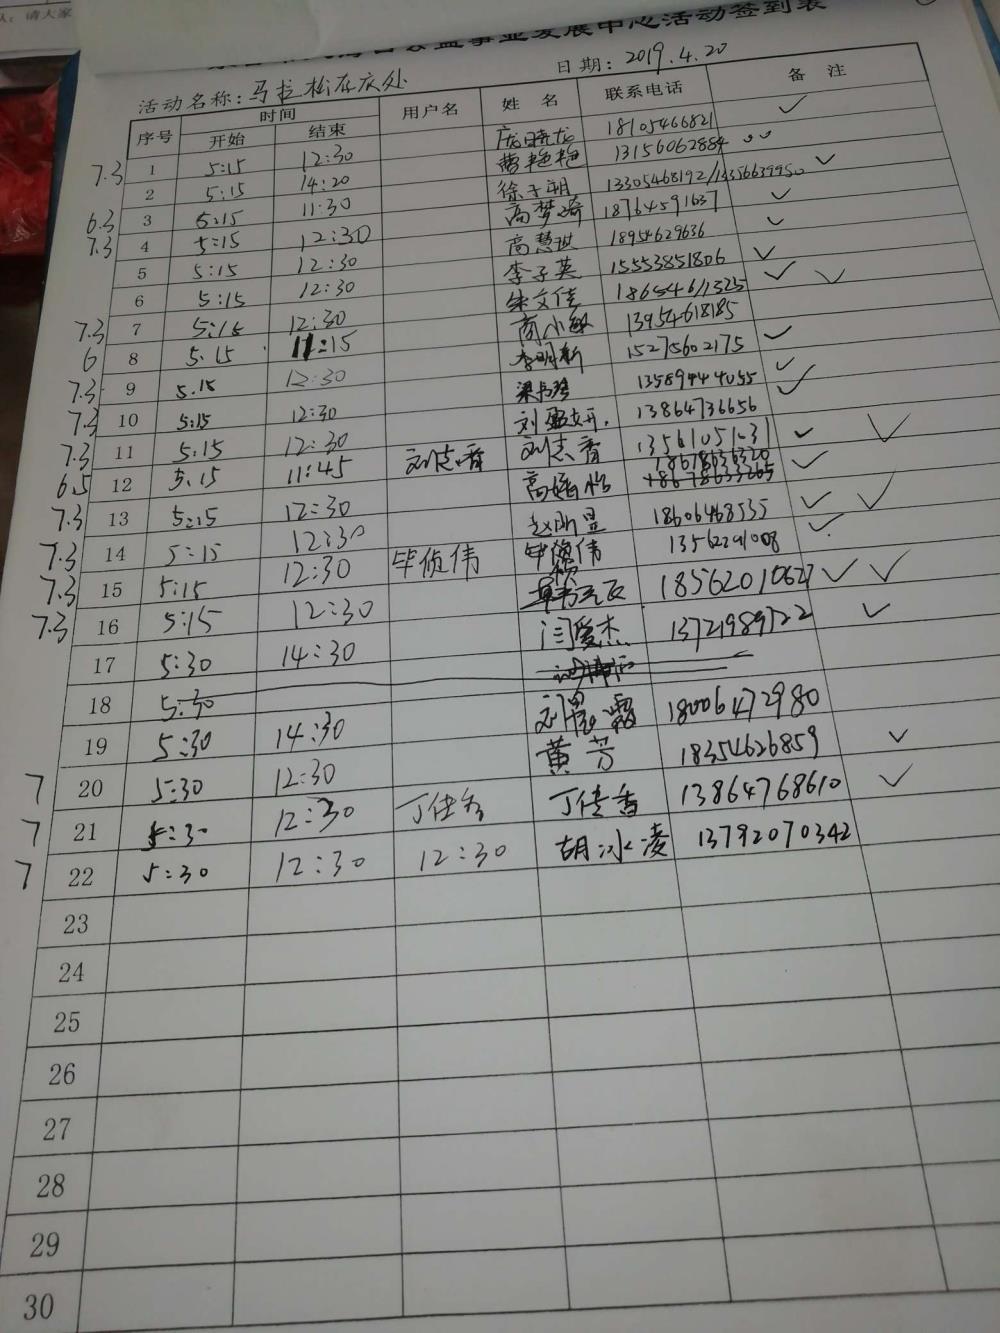 请大家
公益事业发展中心活动签到表
活动名称:马拉松存衣处 日期:2019.4.20
序号 时间 用户名 姓名 联系电话 备注
开始 结束
7.3 1 5:15 12:30 庞晓龙 18105466821 ✓
2 5:15 14:20 曹艳艳 13156062884
6.3 3 5:15 11:30 徐子朔 13305468192/ ✓
7.3 4 5:15 12:30 高梦琦 18764591637 ✓
5 5:15 12:30 高慧琪 18954629636 ✓
6 5:15 12:30 李子英 15553851806 ✓
7.3 7 5:15 12:30 朱文佳 18654611325 ✓ ✓
6 8 5.15 11:15 商小 13954618185
7.3 9 5.15 12:30 李明新 15275602175 ✓
7.3 10 5:15 12:30 13589444055 ✓
7.3 11 5:15 12:30 刘 妍 13864736656 ✓
6.5 12 5.15 11:45 刘志香 刘志香 13561051631 ✓ ✓
7.3 13 5:15 12:30 高 ✓
7.3 14 5:15 12:30 赵 昱 18606468535 ✓ ✓
7.3 15 5:15 12:30 毕侦伟 毕侦伟 13562291008 ✓
7.3 16 5:15 12:30 18562010627 ✓ ✓
17 5:30 14:30 闫爱杰 13721989722 ✓
18 5:30
19 5:30 14:30 刘 霞 18006472980
7 20 5:30 12:30 黄芳 18354626859 ✓
7 21 5:30 12:30 丁佳香 丁佳香 13864768610 ✓
7 22 5:30 12:30 12:30 胡冰凌 13792070342
23
24
25
26
27
28
29
30